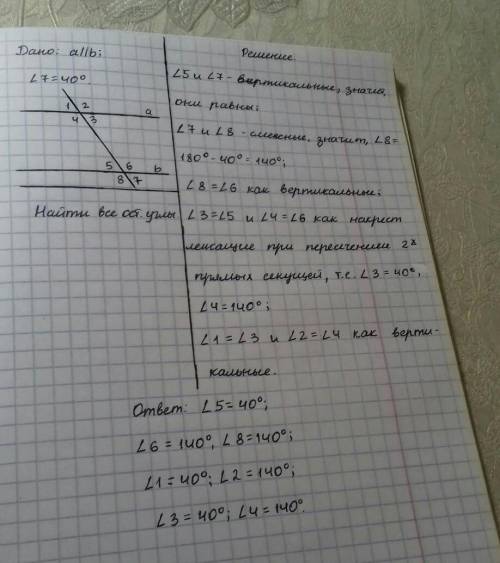 Дано: a//b;
∠7=40°
1 2
4 3
a
5 6
8 7
b
Найти все ост. углы
Решение.
∠5 и ∠7 - вертикальные, значит,
они равны;
∠7 и ∠8 - смежные, значит, ∠8=
180°-40°=140°;
∠8=∠6 как вертикальные;
∠3=∠5 и ∠4=∠6 как накрест
лежащие при пересечении 2х
прямых секущей, т.е. ∠3=40°,
∠4=140°;
∠1=∠3 и ∠2=∠4 как верти-
кальные.
Ответ: ∠5=40°;
∠6=140°, ∠8=140°;
∠1=40°; ∠2=140°;
∠3=40°; ∠4=140°.